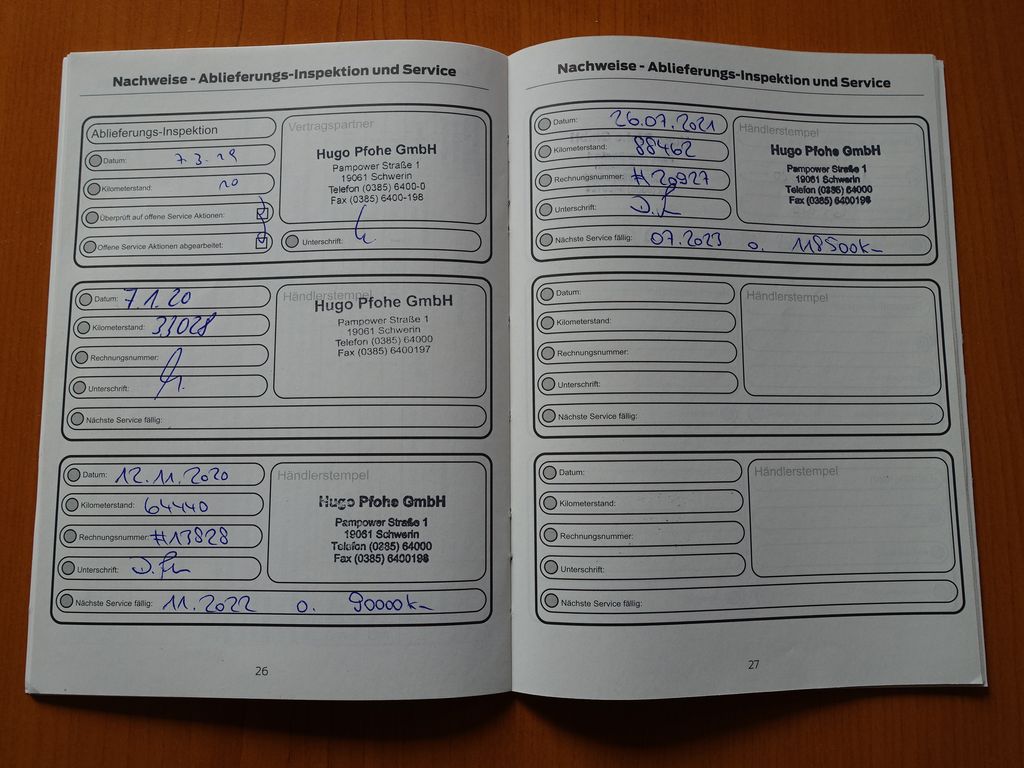 Nachweise - Ablieferungs-Inspektion und Service
Ablieferungs-Inspektion
Datum: 7.3.19
Kilometerstand: 20
Überprüft auf offene Service Aktionen:
Offene Service Aktionen abgearbeitet:
Vertragspartner
Hugo Pfohe GmbH
Pampower Straße 1
19061 Schwerin
Telefon (0385) 6400-0
Fax (0385) 6400-198
Unterschrift:
Datum: 7.1.20
Kilometerstand: 33028
Rechnungsnummer:
Unterschrift:
Händlerstempel
Hugo Pfohe GmbH
Pampower Straße 1
19061 Schwerin
Telefon (0385) 64000
Fax (0385) 6400197
Nächste Service fällig:
Datum: 12.11.2020
Kilometerstand: 64440
Rechnungsnummer: #13828
Unterschrift:
Händlerstempel
Hugo Pfohe GmbH
Pampower Straße 1
19061 Schwerin
Telefon (0385) 64000
Fax (0385) 6400198
Nächste Service fällig: 11.2022 o. 90000k
26
Nachweise - Ablieferungs-Inspektion und Service
Datum: 26.07.2021
Kilometerstand: 88462
Rechnungsnummer: #20927
Unterschrift:
Händlerstempel
Hugo Pfohe GmbH
Pampower Straße 1
19061 Schwerin
Telefon (0385) 64000
Fax (0385) 6400198
Nächste Service fällig: 07.2023 o. 118500k
Datum:
Kilometerstand:
Rechnungsnummer:
Unterschrift:
Händlerstempel
Nächste Service fällig:
Datum:
Kilometerstand:
Rechnungsnummer:
Unterschrift:
Händlerstempel
Nächste Service fällig:
27